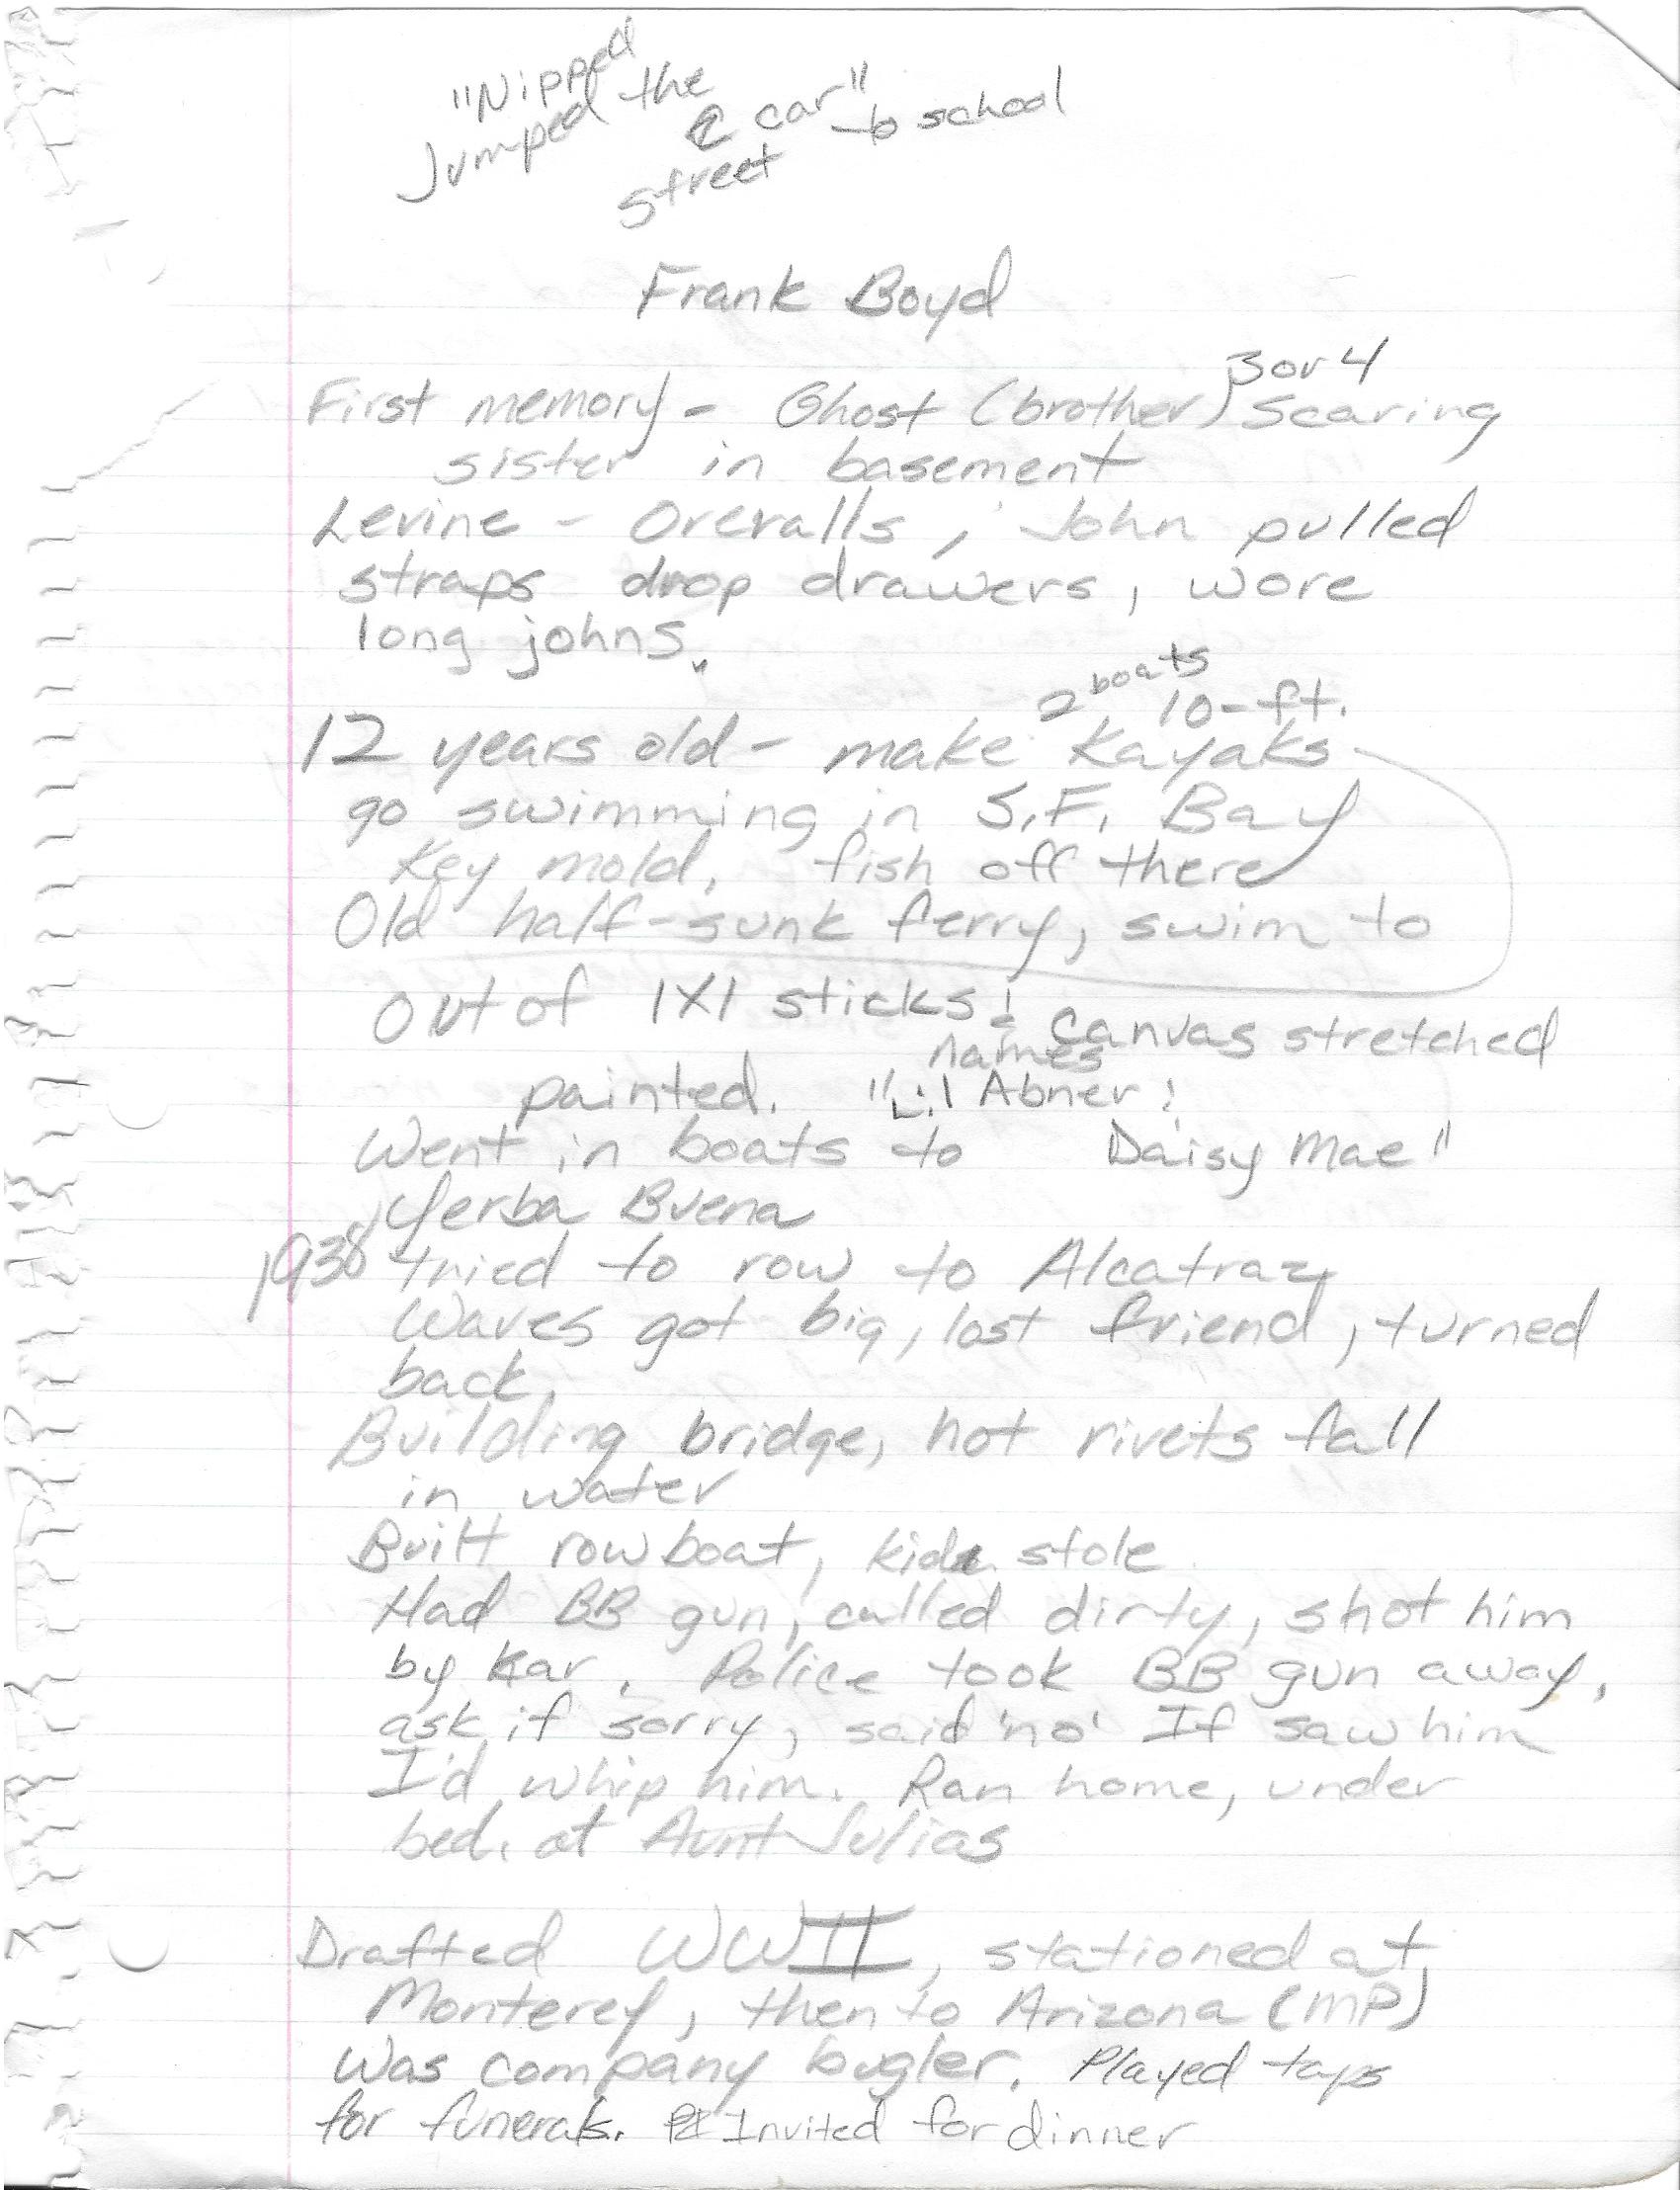 "Nipped
Jumped the
car" to school
street
Frank Boyd
3 or 4
First memory - Ghost (brother) Scaring
sister in basement
Levine - Overalls, John pulled
straps drop drawers, wore
long johns.
2 boats 10-ft.
12 years old - make Kayaks
go swimming in S.F. Bay
Key mold, fish off there
Old half-sunk ferry, swim to
Out of 1X1 sticks & canvas stretched
names
painted. "Lil Abner &
Went in boats to Daisy Mae"
Yerba Buena
1938 tried to row to Alcatraz
Waves got big, lost friend, turned
back.
Building bridge, hot rivets fall
in water
Built rowboat, kids stole
Had BB gun, called dirty, shot him
by Kar. Police took BB gun away,
ask if sorry, said 'no' If saw him
I'd whip him. Ran home, under
bed. at Aunt Julias
Drafted WWII, stationed at
Monterey, then to Arizona (MP)
Was company bugler. Played taps
for funerals. Invited for dinner